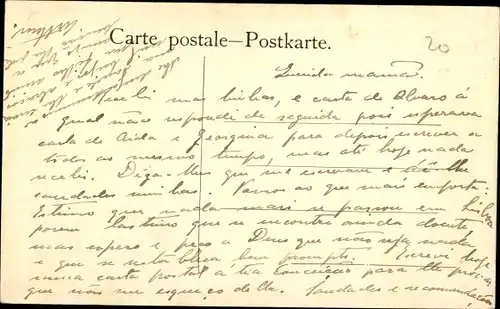 Carte postale—Postkarte.
20
Querida mamã.
Recebi suas linhas, e carta de Alvaro á
qual não respondi de seguida pois esperava
carta de Aida e Georgina para depois escrever a
todos ao mesmo tempo, mas até hoje nada
recebi. Diga-lhes que me escrevam e dê-lhe
saudades minhas. Vamos ao que mais importa:
Estimo que nada mais se passou em Lisboa
porem lastimo que se encontre ainda doente
mas espero e peço a Deus que não seja nada
e que se restabeleça bem prompto. Escrevi hoje
uma carta postal á tia Conceição para lhe provar
que não me esqueço de lla. Saudades e recomendações